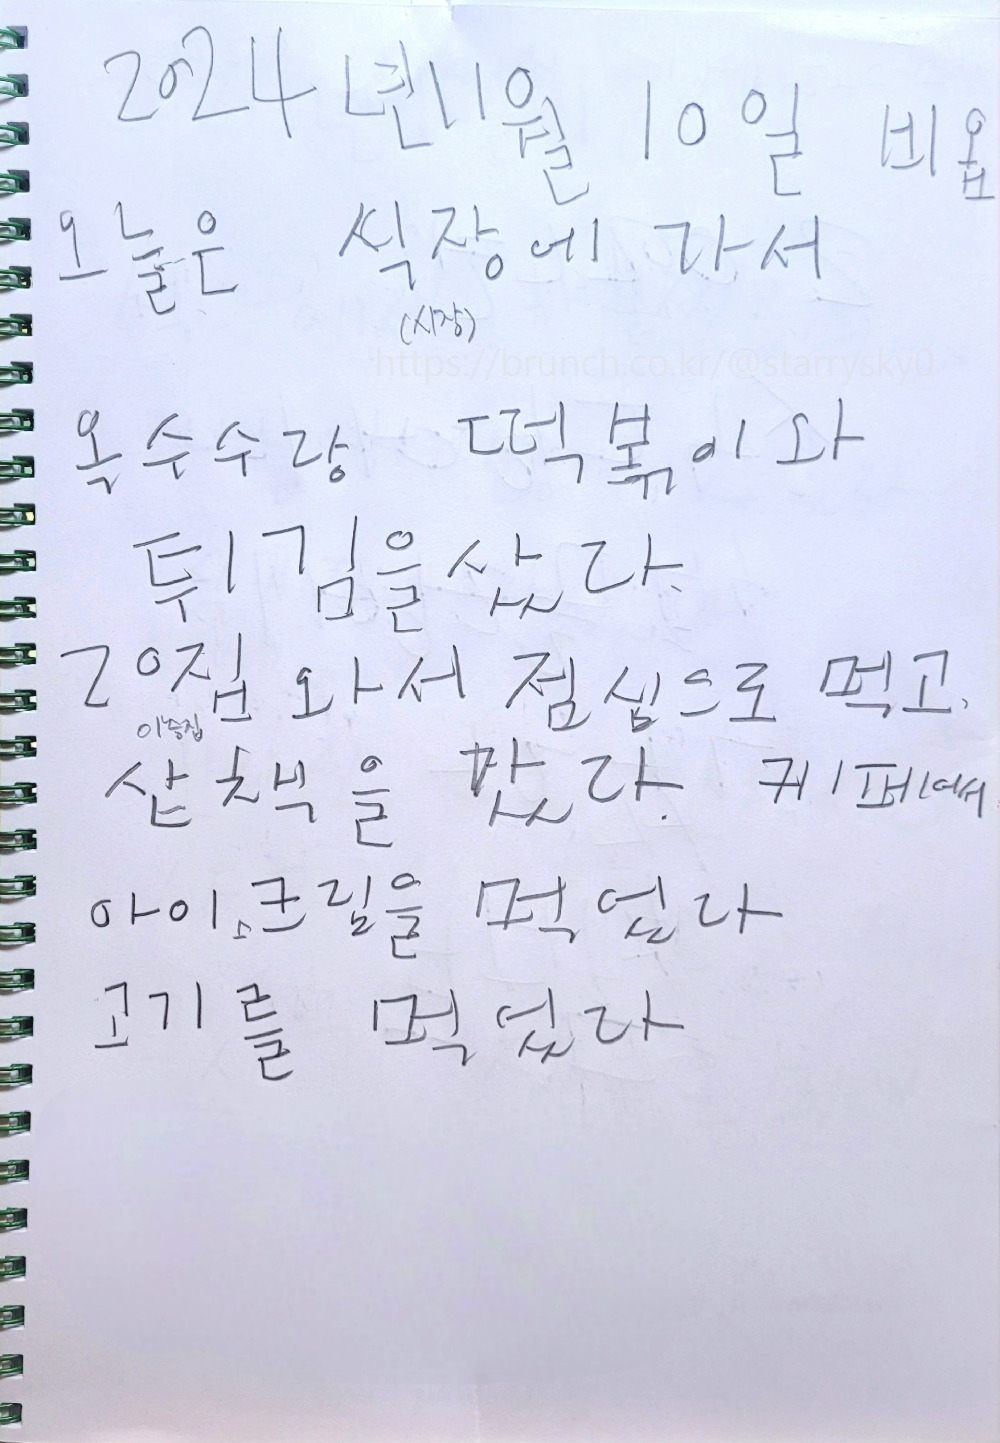 2024년 11월 10일 비옴
오늘은 씩장에 가서
(시장)
https://brunch.co.kr/@starrysky0
옥수수랑 떡볶이와
튀김을 샀다.
20집 와서 점심으로 먹고.
이층집
산책을 갔다. 커페에서
아이스크림을 먹었다
고기를 먹었다